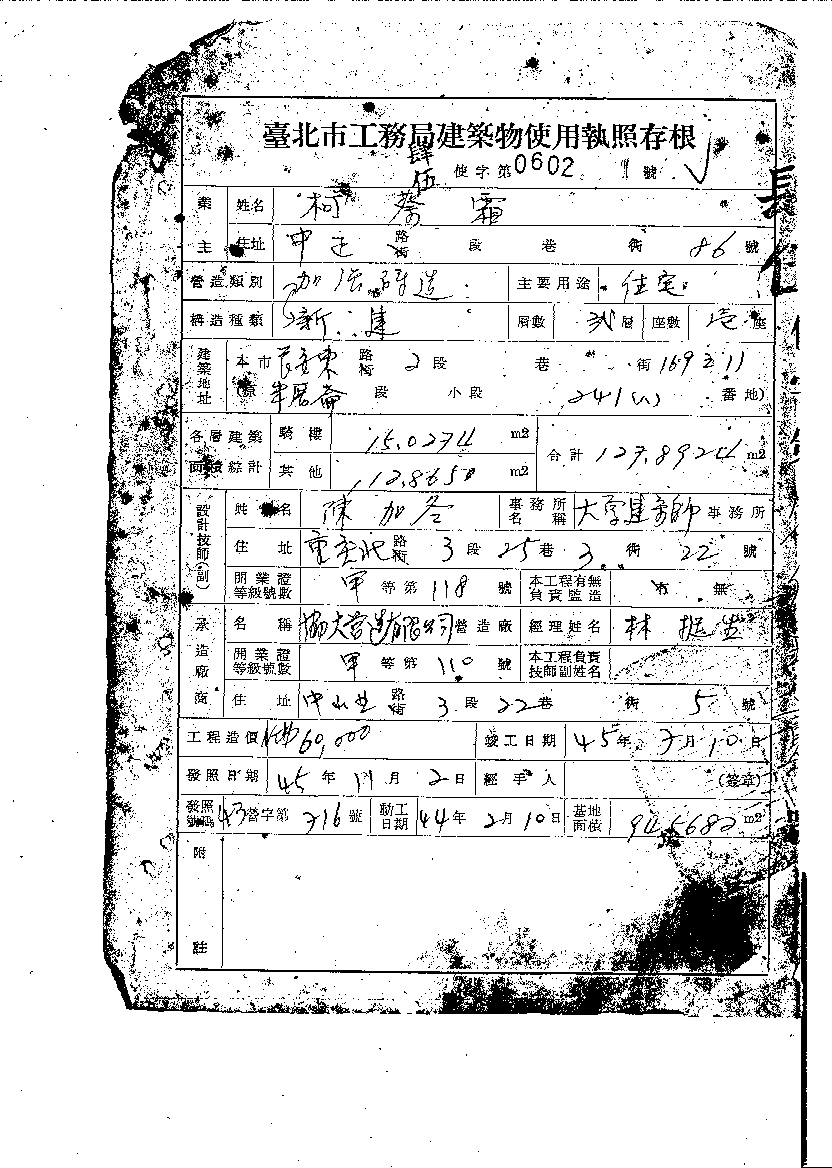 臺北市工務局建築物使用執照存根
肆伍 使字第0602號
業主 姓名 柯蔡霜
住址 中正路街 段 巷 街 86號
營造類別 加强磚造 主要用途 住宅
構造種類 新建 層數 弍層 座數 壱座
建築地址 本市長安東路街 2段 巷 街 169之11
(原 段 小段 241(八) 番地)
各層建築面積綜計 騎樓 15.0274 m2 合計 127.8924 m2
其他 112.8650 m2
設計技師(副) 姓名 陳加冬 事務所名稱 大孚建築師事務所
住址 重慶北路街 3段 25巷 3街 22號
開業證等級號數 甲等第118號 本工程有無負責監造 有 無
承造廠商 名稱 協大營造有限公司營造廠 經理姓名 林挺生
開業證等級號數 甲等第110號 本工程負責技師副姓名
住址 中山北路街 3段 22巷 街 5號
工程造價 60,000 竣工日期 45年 7月10日
發照日期 45年11月2日 經手人 (簽章)
發照號碼 43營字第716號 動工日期 44年2月10日 基地面積 94.5682 m2
附註